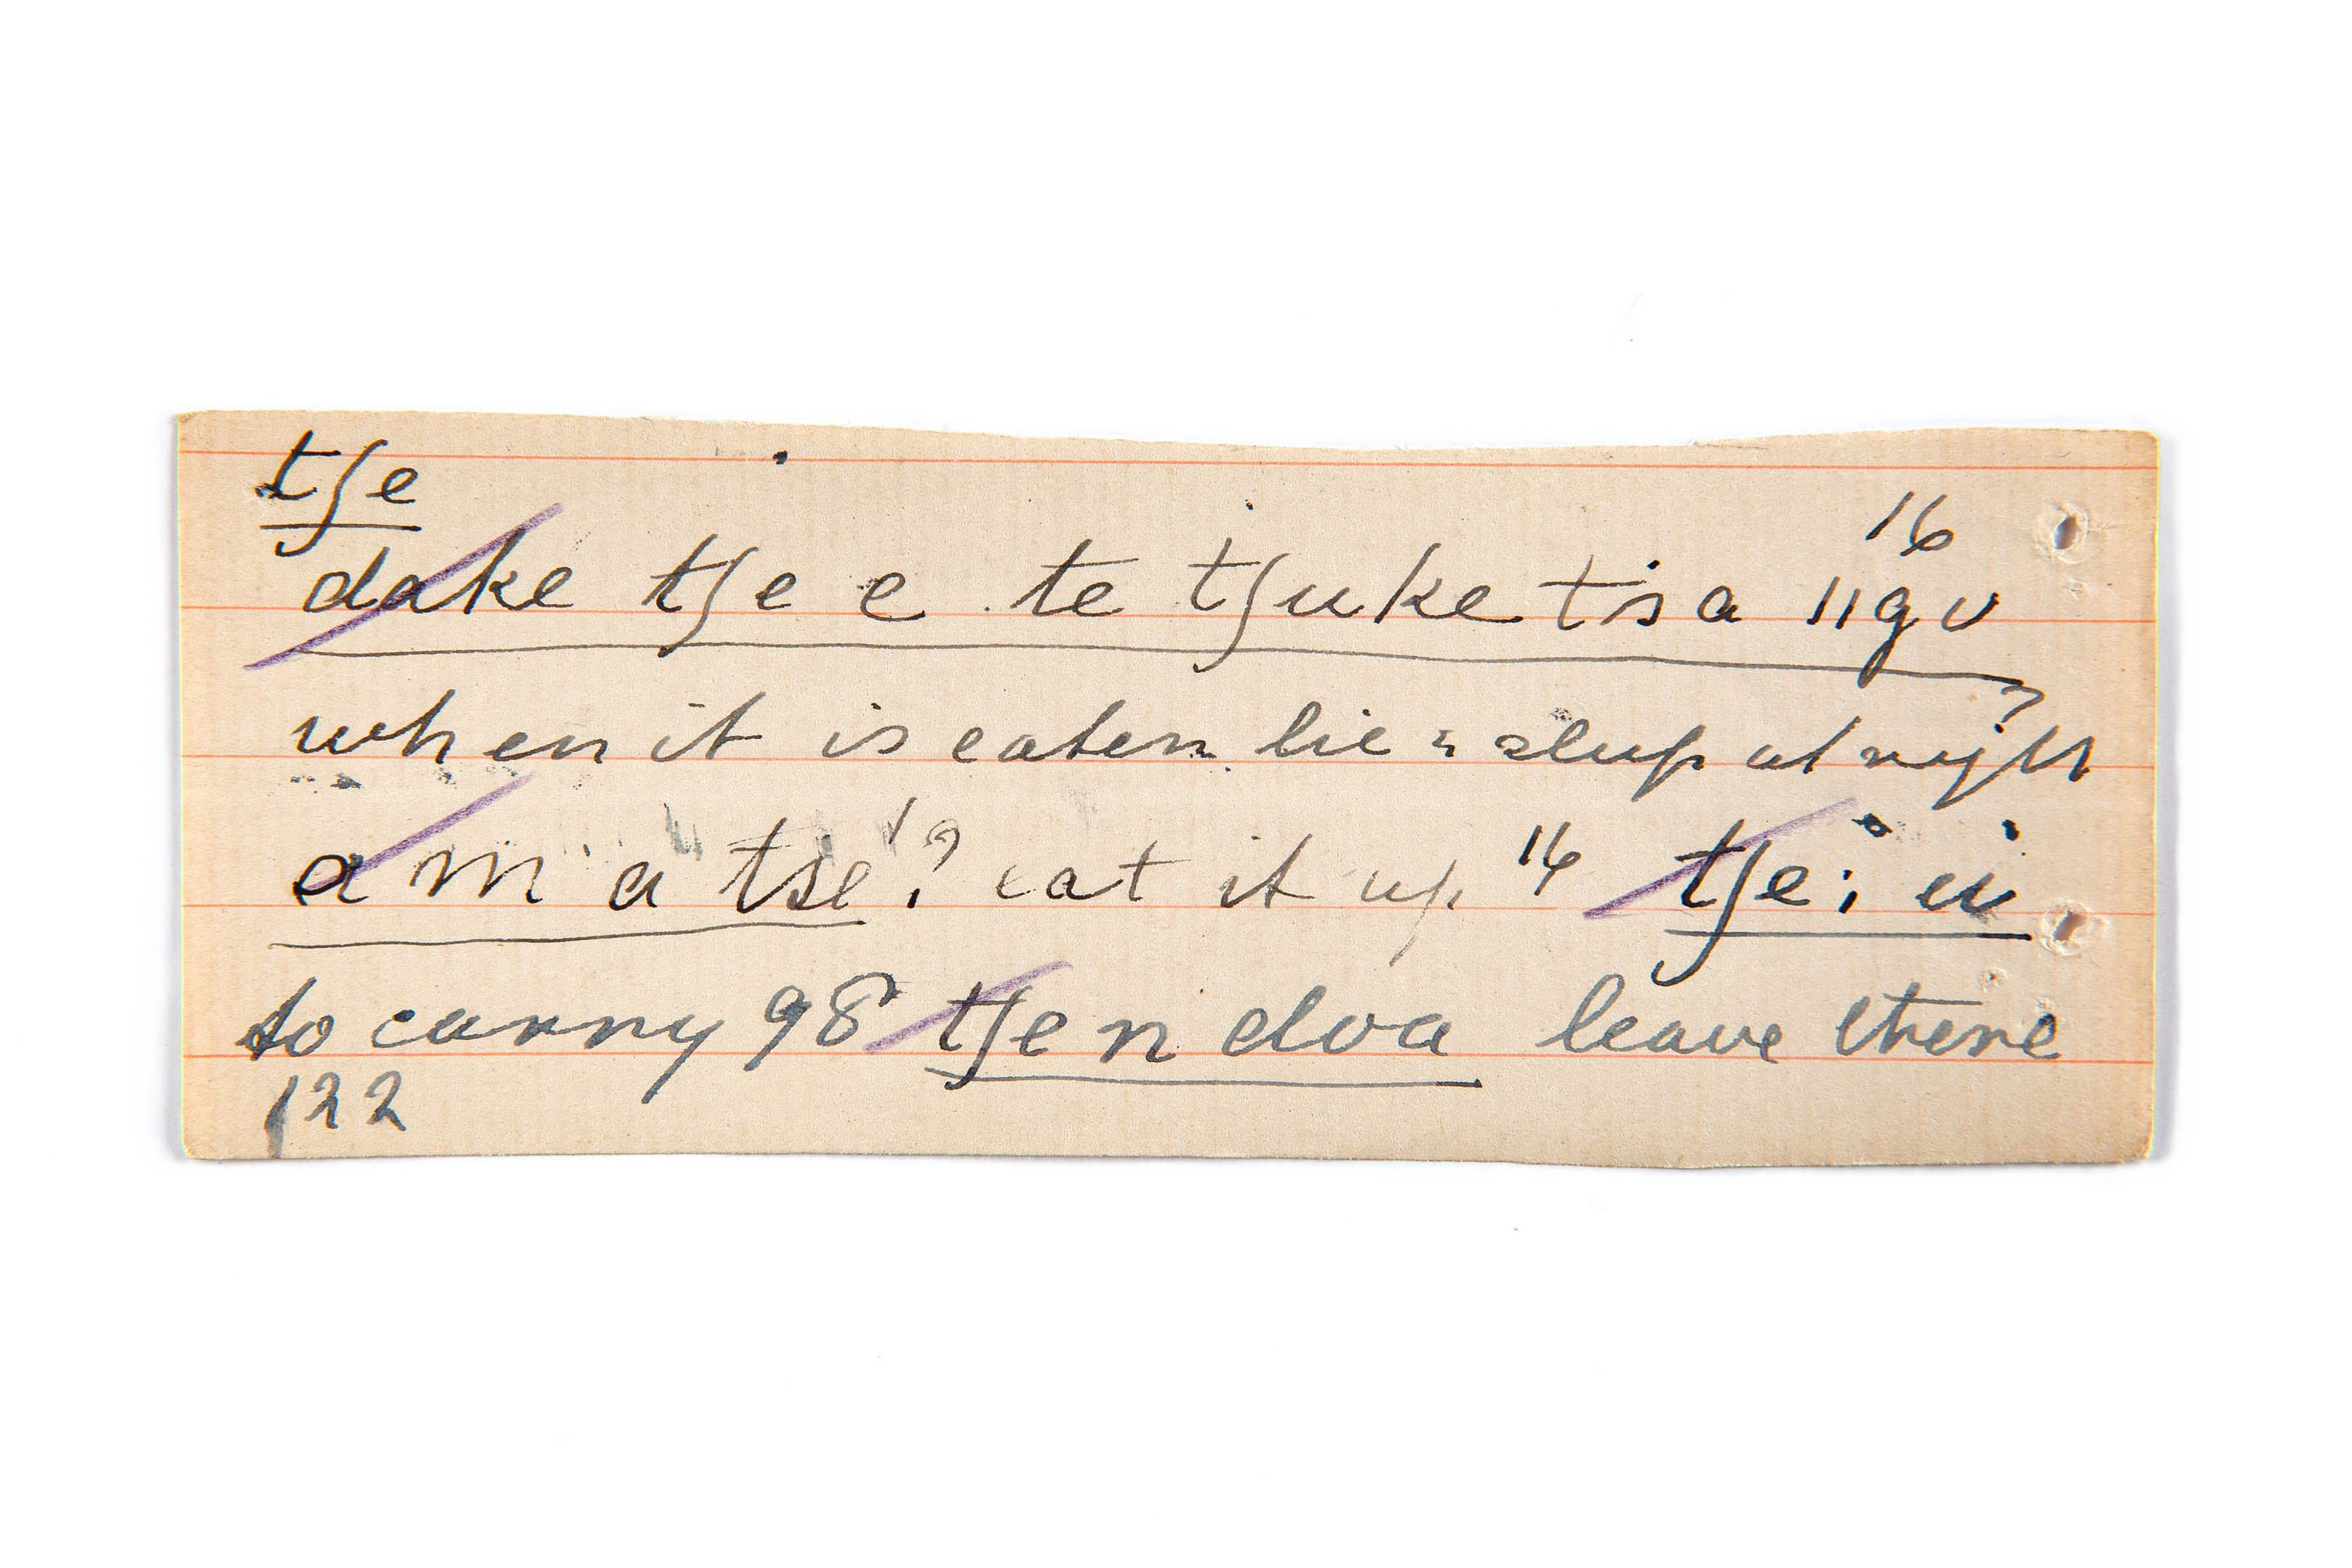 tʃe
dake tʃe e te tʃuke tsa ǁgv 16
when it is eaten lie = sleep at night
a m a tse? eat it up 16 tʃe: ii
to carry 98 tʃe n doa leave there
122